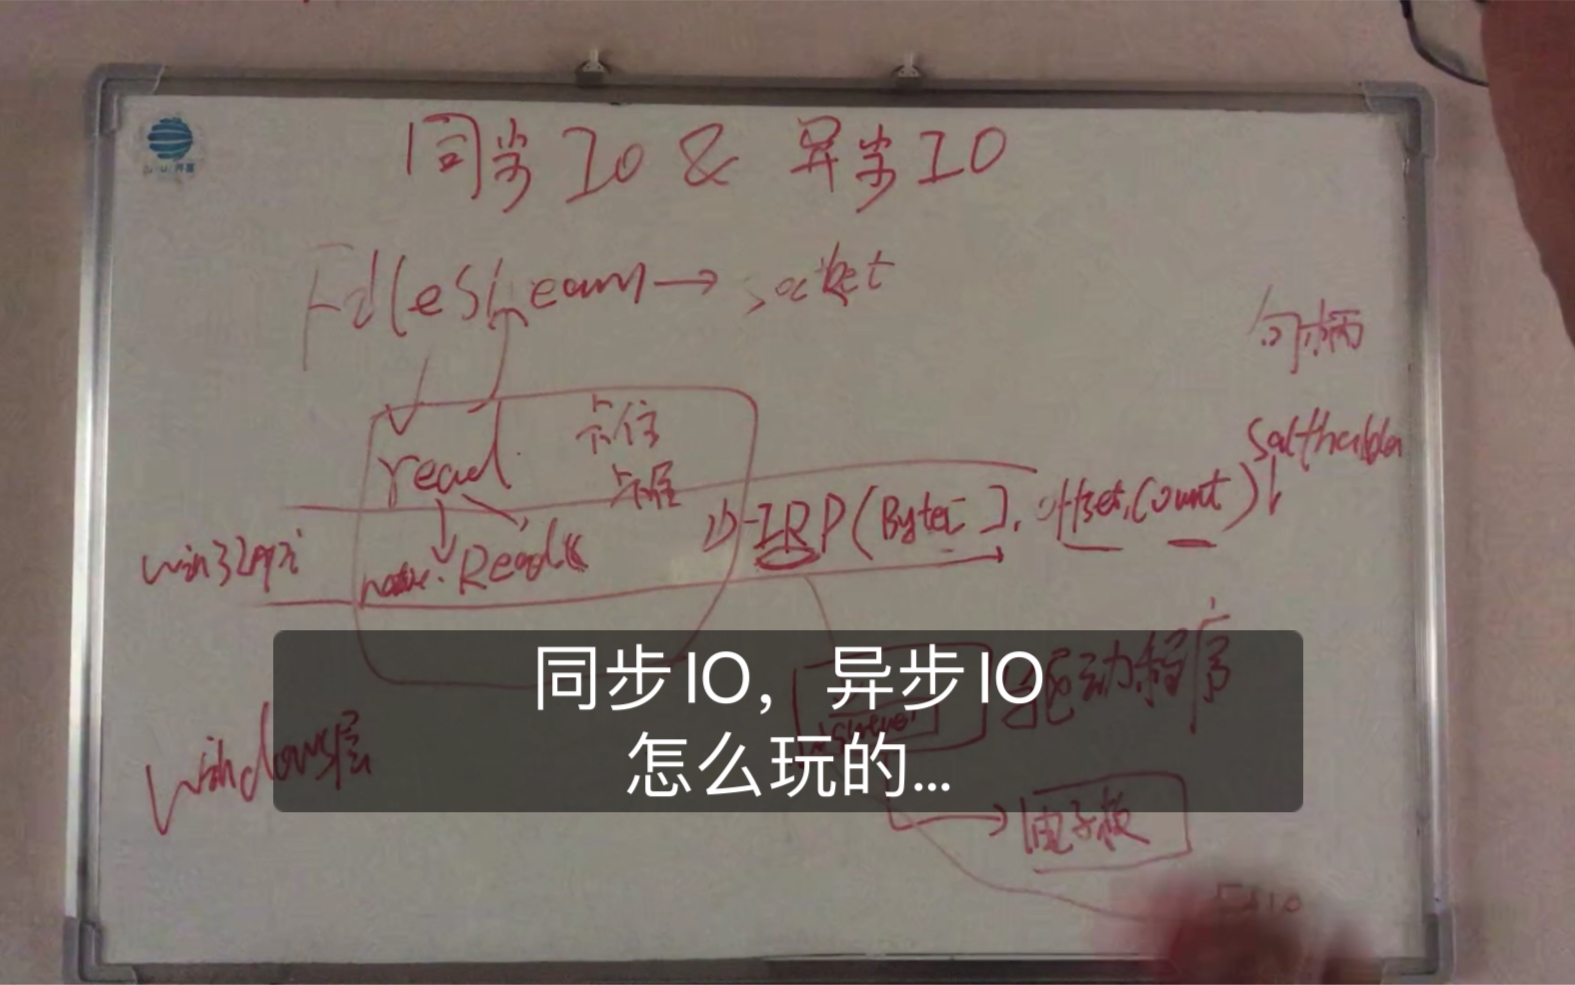 同步IO & 异步IO
FileStream → socket
句柄
read 卡住
SafeHandle
IRP(Byte[], offset, Count)
win32api
native.Read
同步IO，异步IO
怎么玩的...
驱动程序
Windows层
电子板